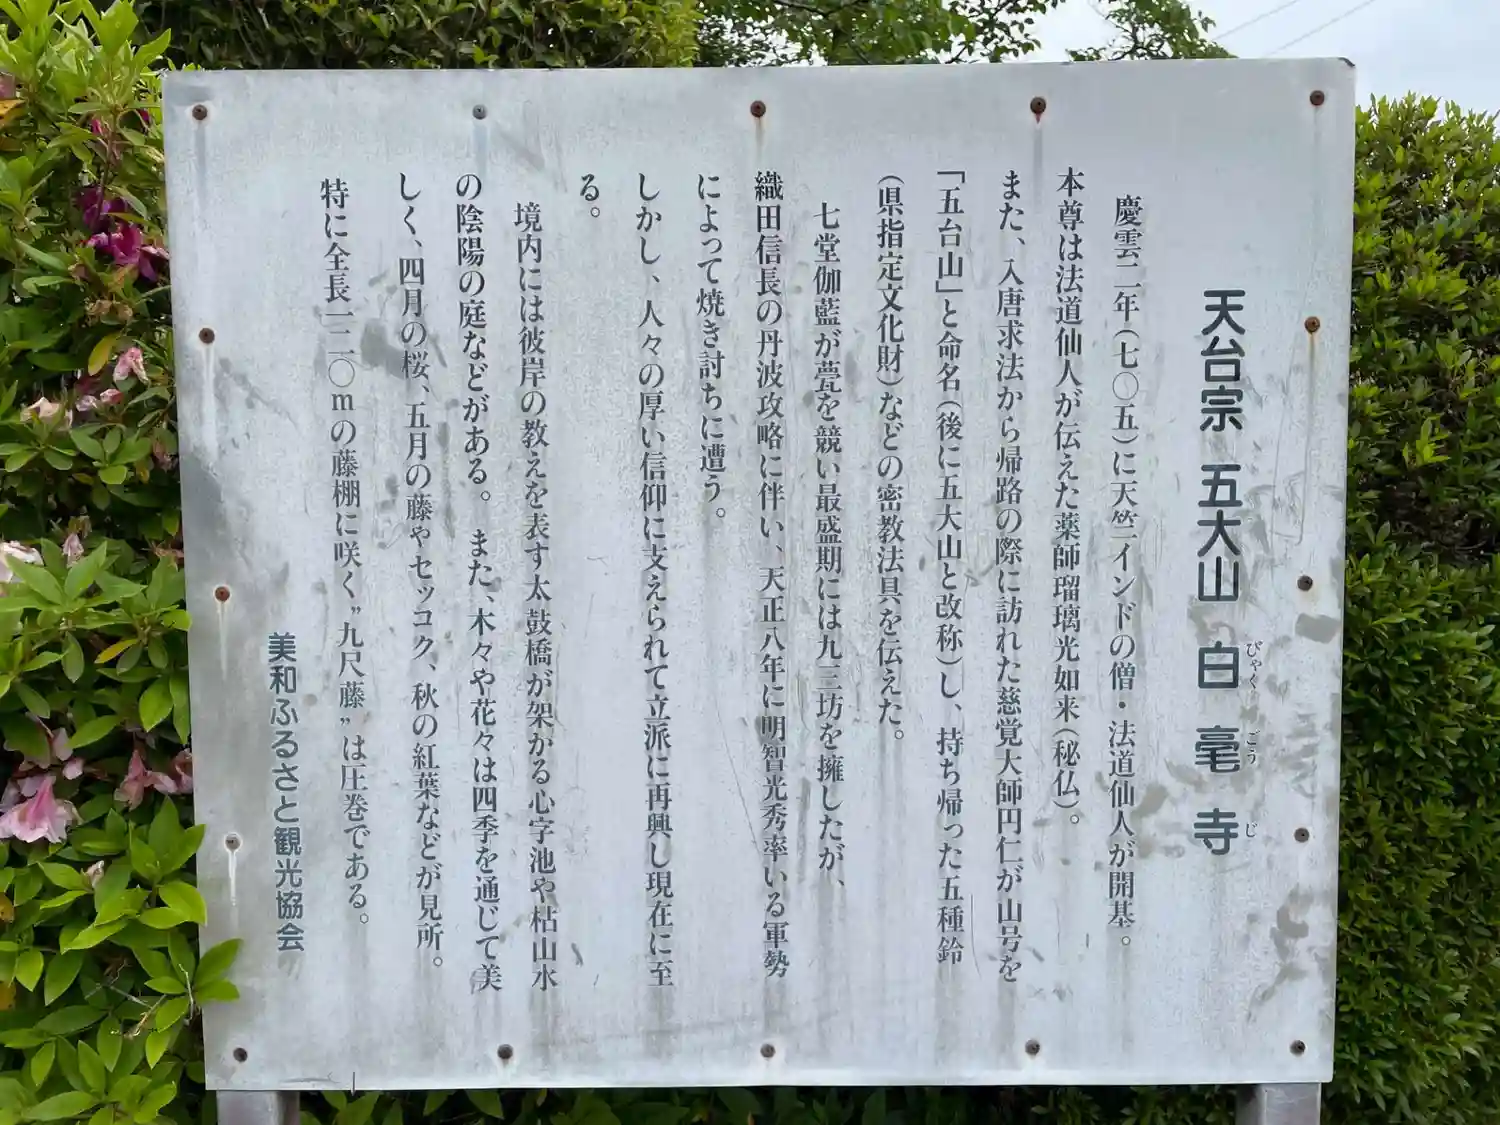 天台宗 五大山 白毫寺
びゃく ごう じ
慶雲二年(七〇五)に天竺=インドの僧・法道仙人が開基。
本尊は法道仙人が伝えた薬師瑠璃光如来(秘仏)。
また、入唐求法から帰路の際に訪れた慈覚大師円仁が山号を
「五台山」と命名(後に五大山と改称)し、持ち帰った五種鈴
(県指定文化財)などの密教法具を伝えた。
七堂伽藍が甍を競い最盛期には九三坊を擁したが、
織田信長の丹波攻略に伴い、天正八年に明智光秀率いる軍勢
によって焼き討ちに遭う。
しかし、人々の厚い信仰に支えられて立派に再興し現在に至
る。
境内には彼岸の教えを表す太鼓橋が架かる心字池や枯山水
の陰陽の庭などがある。また、木々や花々は四季を通じて美
しく、四月の桜、五月の藤やセッコク、秋の紅葉などが見所。
特に全長一二〇mの藤棚に咲く”九尺藤”は圧巻である。
美和ふるさと観光協会